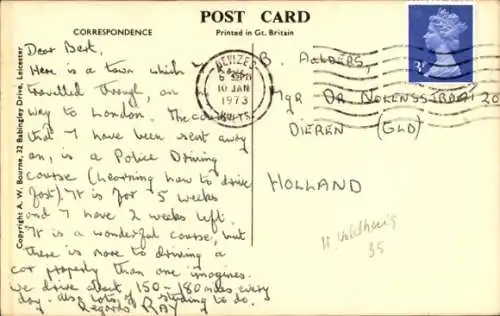 POST CARD
CORRESPONDENCE
Printed in Gt. Britain
Copyright A. W. Bourne, 32 Babingley Drive, Leicester
Dear Bert,
Here is a town which I
travelled through, on
way to London. The course
that I have been sent away
on, is a Police Driving
course (Learning how to drive
fast). It is for 5 weeks
and I have 2 weeks left.
It is a wonderful course, but
there is more to driving a
car properly than one imagines.
We drive about 150-180 miles every
day. Also lots of studying to do.
Regards RAY
DEVIZES
10 JAN
1973
WILTS
3P
B. AALDERS,
Mgr Dr NOLENSSTRAAT 20
DIEREN (GLD)
HOLLAND
35